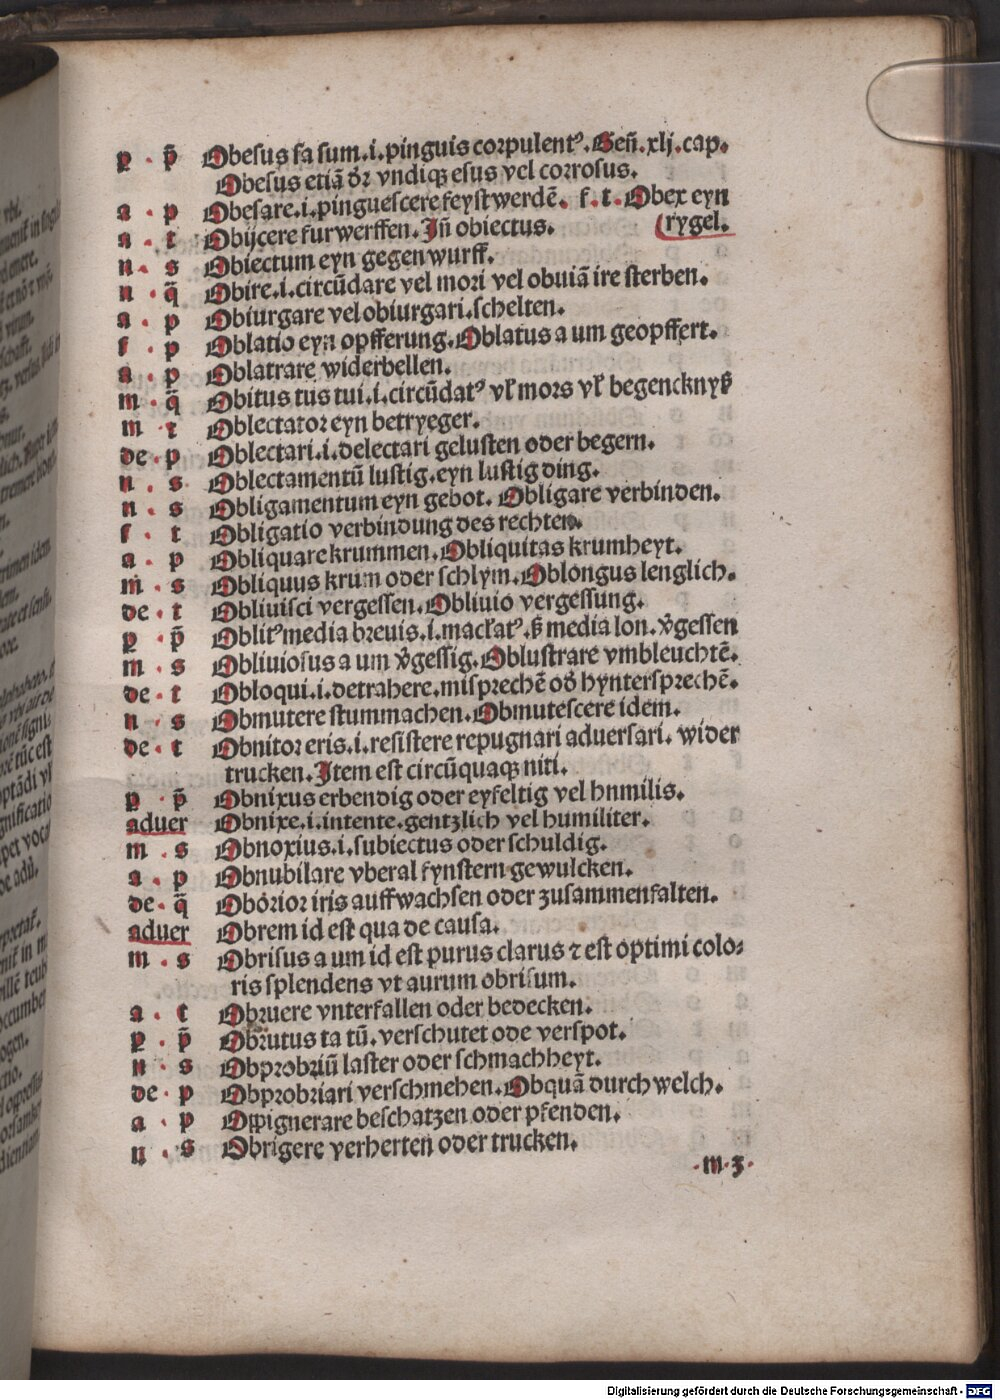 p · p̃ Obesus sa sum.i.pinguis corpulentꝰ.Geñ.xlj.cap.
Obesus etiā dr̄ vndiqꝫ esus vel corrosus.
a · p Obesare.i.pinguescere feyst werdē. f.t.Obex eyn
a · t Obijcere furwerffen.Jñ obiectus. (rygel.
n · s Obiectum eyn gegen wurff.
n · q̃ Obire.i.circūdare vel mori vel obuiā ire sterben.
a · p Obiurgare vel obiurgari.schelten.
f · p Oblatio eyn opfferung.Oblatus a um geopffert.
a · p Oblatrare widerbellen.
m · q̃ Obitus tus tui.i.circūdatꝰ vl̓ mors vl̓ begencknyß
m · t Oblectator eyn betryeger.
de · p Oblectari.i.delectari gelusten oder begern.
n · s Oblectamentū lustig.eyn lustig ding.
n · s Obligamentum eyn gebot. Obligare verbinden.
f · t Obligatio verbindung des rechten.
a · p Obliquare krummen.Obliquitas krumheyt.
m · s Obliquus krum oder schlym.Oblongus lenglich.
de · t Obliuisci vergessen.Obliuio vergessung.
p · p̃ Oblitꝰ media breuis.i.macl̓atꝰ.ß media lon.v̓gessen
m · s Obliuiosus a um v̓gessig.Oblustrare vmbleuchtē.
de · t Obloqui.i.detrahere.misprechē od̓ hyntersprechē.
n · s Obmutere stummachen.Obmutescere idem.
de · t Obnitor eris.i.resistere repugnari aduersari. wider
trucken.Jtem est circūquaqꝫ niti.
p · p̃ Obnixus erbendig oder eyfeltig vel hnmilis.
aduer Obnixe.i.intente.gentzlich vel humiliter.
m · s Obnoxius.i.subiectus oder schuldig.
a · p Obnubilare vberal fynstern gewulcken.
de · q̃ Oborior iris auffwachsen oder zusammenfalten.
aduer Obrem id est qua de causa.
m · s Obrisus a um id est purus clarus ⁊ est optimi colo⸗
ris splendens vt aurum obrisum.
a · t Obruere vnterfallen oder bedecken.
p · p̃ Obrutus ta tū.verschutet ode verspot.
n · s Obprobriū laster oder schmachheyt.
de · p Obprobriari verschmehen.Obquā durch welch.
a · p Oppignerare beschatzen oder pfenden.
n · s Obrigere verherten oder trucken.
·m·3·
Digitalisierung gefördert durch die Deutsche Forschungsgemeinschaft - DFG